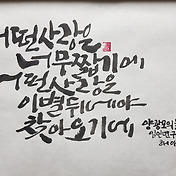 어떤사랑은
너무짧기에
어떤사랑은
이별뒤에야
찾아오기에
양광모의